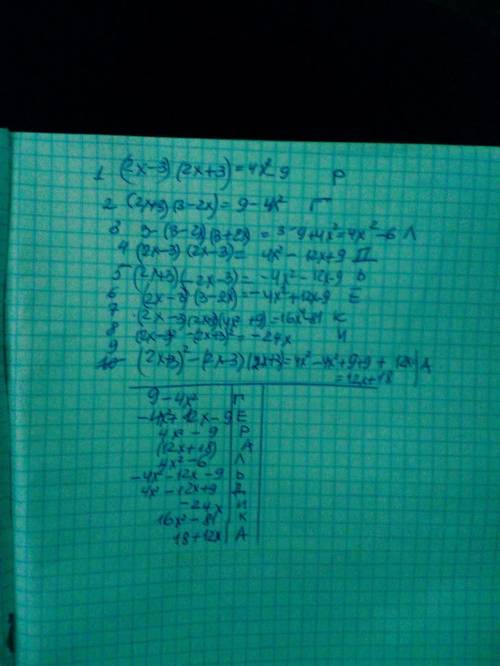 1 (2x-3)(2x+3)=4x²-9 Р
2 (2x+3)(3-2x)=9-4x² Г
3 3-(3-2x)(3+2x)=3-9+4x²=4x²-6 Л
4 (2x-3)(2x-3)= 4x²-12x+9 Д
5 (2x+3)(-2x-3)=-4x²-12x-9 Ь
6 (2x-3)(3-2x)=-4x²+12x-9 Е
7 (2x-3)(2x+3)(4x²+9)=16x²-81 К
8 (2x-3)²-(2x+3)²=-24x И
9
10 (2x+3)²-(2x-3)(2x+3)=4x²-4x²+9+9+12x А
=12x+18
9-4x² Г
-4x²+12x-9 Е
4x²-9 Р
(12x+18) А
4x²-6 Л
-4x²-12x-9 Ь
4x²-12x+9 Д
-24x И
16x²-81 К
18+12x А